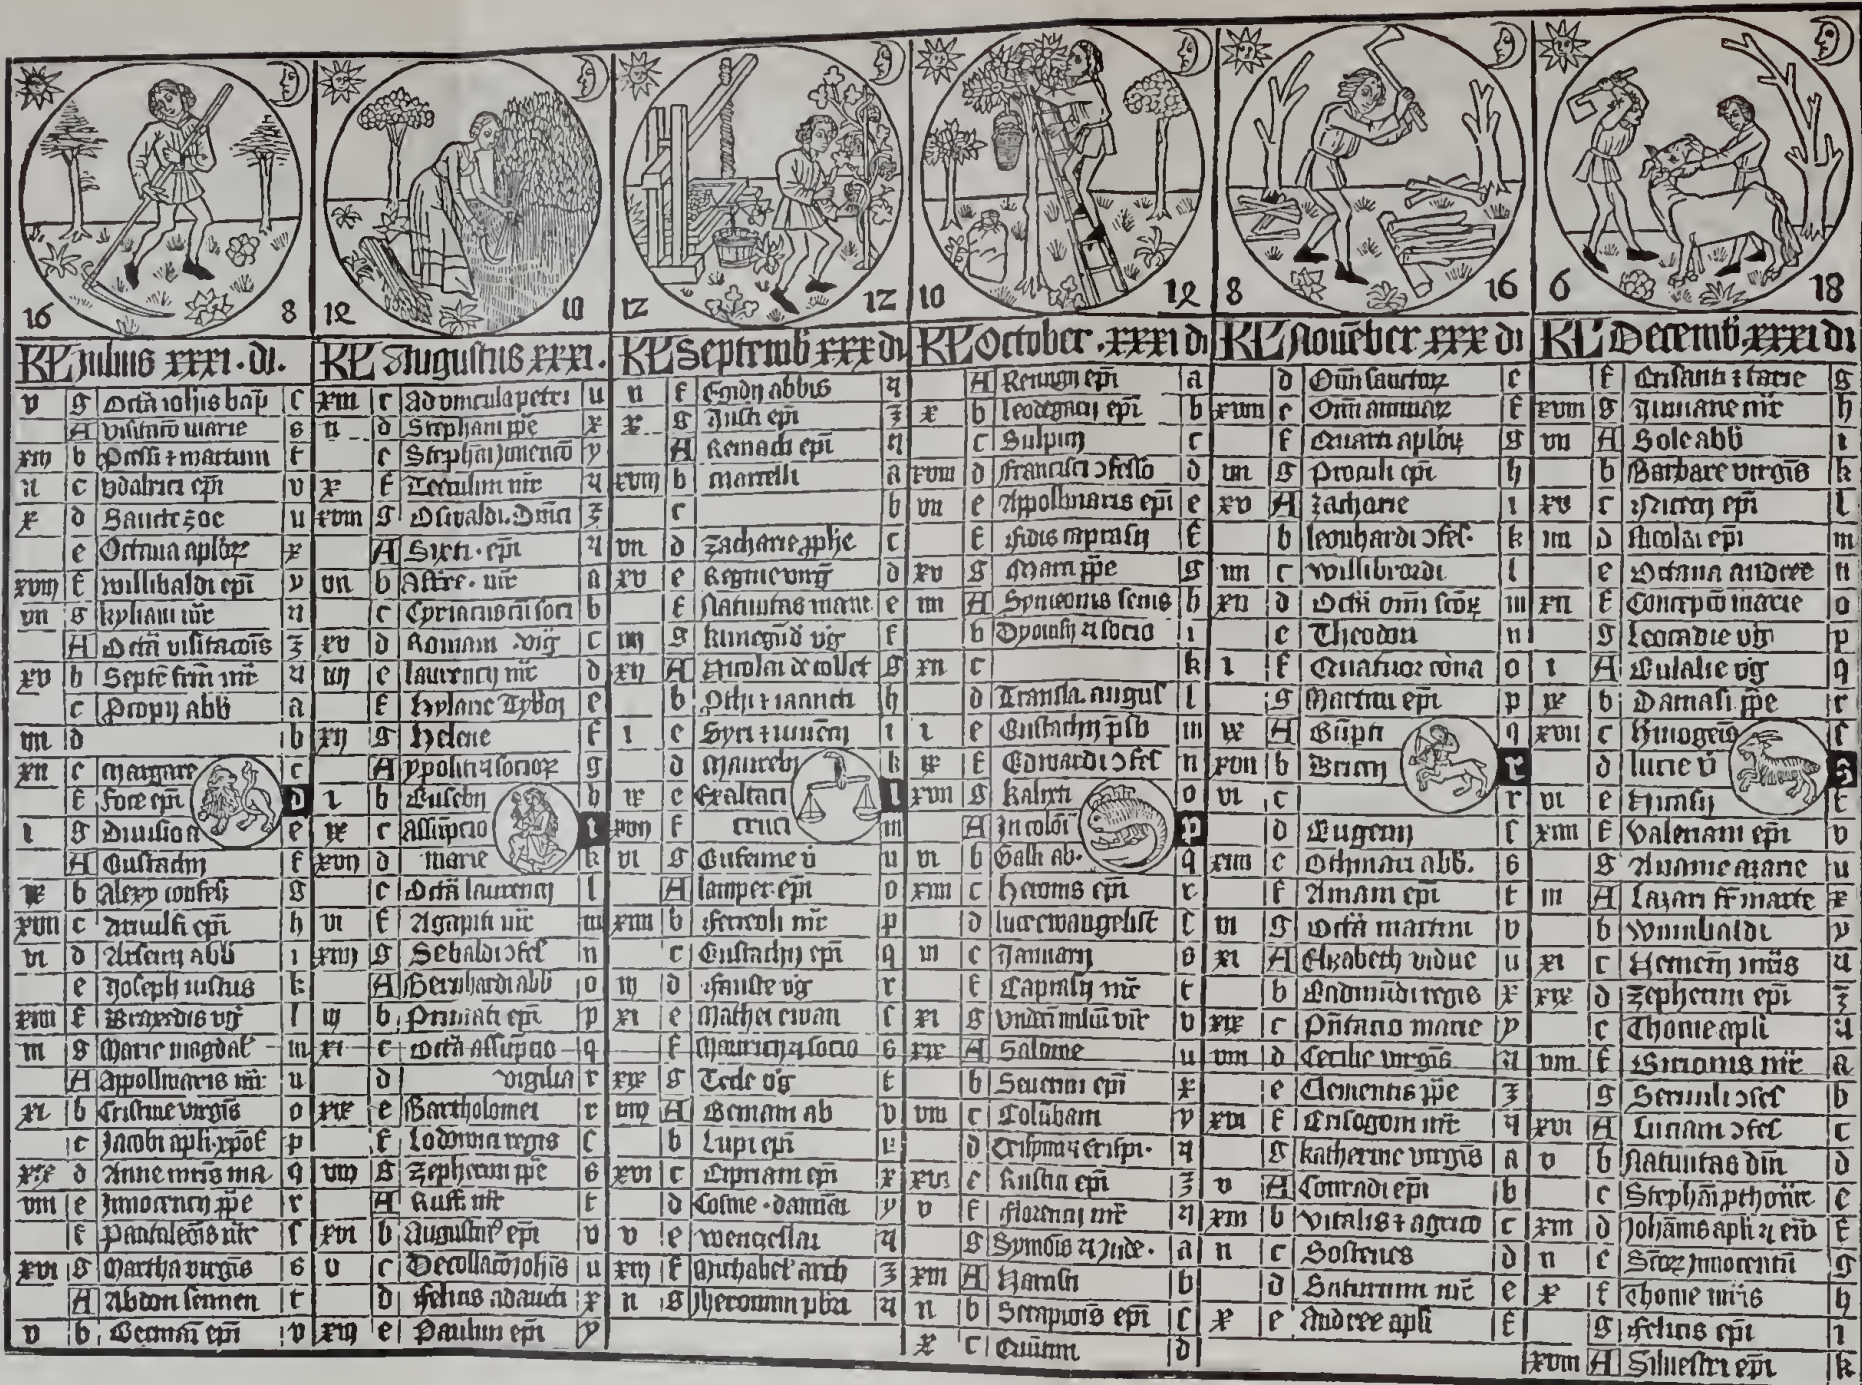 16 8
KL Julius xxxi. di.
v g Octã iohis bap̃ c
A visitacõ marie s
xiii b Processi ⁊ martini t
ii c Vdalrici ep̃i v
x d Sancte zoe u
e Octaua aplõꝝ x
xviii f willibaldi ep̃i y
vii g kyliani mr̃
A Octã visitacõis ʒ
xv b Septẽ frm̃ mr̃
c Propij abb̃ a
iiii d b
xii e Margare c
f fore ep̃i d
i g Diuisio a e
A Eustachij f
ix b Alexy confeſſ g
xvii c Arnulfi ep̃i h
vi d Arsenij abb̃ i
e Joseph iustus k
xiiii f Braxedis vg̃ l
iii g Marie magdaľ m
A Appollinaris mr̃ n
xi b Cristine virgis̃ o
c Jacobi apli·xp̃of p
xix d Anne mr̃is ma q
viii e Innocencij p̃pe r
f Pantaleõis mr̃ ſ
xvi g Martha virgis̃ s
A Abdon sennen t
v b Germãi ep̃i v
12 10
KL Augustus xxxi.
xiii c Ad vincula petri u
ii d Stephani p̃pe x
e Steph̃ai inuencõ y
x f
xviii g Osivaldi. Dm̃ci ʒ
A Sixti · ep̃i
vii b Affre · mr̃ a
c Cyriacus cũ soci b
xv d Romani · vig̃ c
iiii e laurencij mr̃ d
f Hylarie Tyb̃cij e
xii g Helene f
A ypoliti ⁊ socioꝝ g
i b Eusebij h
ix c assũpcio i
xvii d marie k
e Octã laurencij l
vi f Agapiti mr̃ m
xiiii g Sebaldi ɔfeſ n
A Bernhardi abb̃ o
iii b Priuati ep̃i p
xi c Octã assũpcio q
d vigilia r
xix e Bartholomei r
f Lodowici regis ſ
viii g Zepherini p̃pe s
A Ruffi mr̃ t
xvi b Augustini ep̃i v
v c Decollacõ iohis̃ u
d felicis adaucti x
xiii e Paulini ep̃i y
12 12
KL Septemb̃ xxx di
ii f Egidij abbis
x g Justi ep̃i ʒ
A Remacli ep̃i
xviii b marcelli a
c b
vii d Zacharie p̃phe c
xv e Regine virg̃ d
f Natiuitas marie e
iiii g kunegũd vg̃ f
xii A Nicolai de tollet g
b Pthi ⁊ iacincti h
i c Syri ⁊ iuuẽcij i
d Maurelij k
ix e Exaltaci l
xvii f cruci m
vi g Eufemie ṽ n
A lamper. ep̃i o
xiiii b ferreoli mr̃ p
c Eustachij ep̃i q
iii d fauste vg̃ r
xi e Mathei ewan ſ
f Mauricij ⁊ socio s
xix g Tecle vg̃ t
viii A Germani ab v
b Lupi ep̃i
xvi c Cipriani ep̃i x
d Cosme · damiãi y
v e wenceslai
xiii f Michaheľ arch ʒ
ii g Jheronimi pb̃ri
10 12
KL October. xxxi di
A Remigij ep̃i a
x b leodegarij ep̃i b
c Sulpicij c
xviii d francisci ɔfesso d
vii e Appollinaris ep̃i e
f fidis caprasij f
xv g Marci p̃pe g
iiii A Symeonis senis h
b Dyonisij ⁊ socio i
xii c k
d Transla. augus l
i e Eustachij p̃sb m
ix f Edwardi ɔfeſ n
xvii g kalixti o
A p
vi b Galli ab. q
xiiii c heronis ep̃i r
d luce ewangelist ſ
iii e Januarij s
f Caprasij mr̃ t
xi g Vndeci milliũ vir̃ v
xix A Salome u
b Seuerini ep̃i x
viii c Colũbani y
d Crispini ⁊ crispi.
xvi e Rustici ep̃i ʒ
v f florencij mr̃
g Symõis ⁊ Jude. a
xiii A Narcisci b
ii b Serapiõis ep̃i c
x c Quĩtini d
8 16
KL Nouẽber xxx di
d Om̃i sanctoꝝ e
xviii e Om̃i animaꝝ f
f Quarti aplõꝝ g
vii g Proculi ep̃i h
xv A Zacharie i
b leonhardi ɔfeſ. k
iiii c willibrordi l
xii d Octã om̃i scõꝝ m
e Theodori n
i f Quatuor corõa o
g Martini ep̃i p
ix A q
xvii b Briccij r
vi c r
d Eugenij ſ
xiiii e Othmari abb̃. s
f Amani ep̃i t
iii g Octã martini v
xi A Elyzabeth vidue u
b Eadmũdi regis x
xix c Pñtacio marie y
viii d Cecilie virgis̃
e Clementis p̃pe ʒ
xvi f Crisogoni mr̃
g katherine virgis̃ a
v A Conradi ep̃i b
xiii b Vitalis ⁊ agrico c
ii c Sostenes d
d Saturnini mr̃ e
x e Andree apli f
6 18
KL Decemb̃. xxxi di
f Crisanti ⁊ darie g
xviii g h
vii A Sole abb̃ i
b Barbare virgis̃ k
xv c l
iiii d Nicolai ep̃i m
e Octaua andree n
xii f Concepcõ marie o
g Leocadie vg̃ p
i A Eulalie vg̃ q
ix b Damasi p̃pe r
xvii c ſ
d lucie ṽ s
vi e Nicasij t
xiiii f Valeriani ep̃i v
g Ananie azarie u
iii A Lazari fr̃ marte x
b Wunibaldi y
xi c
xix d Zepherini ep̃i ʒ
e Thome apli
viii f a
g Seruuli ɔfeſ b
xvi A Luciani ɔfeſ c
v b Natiuitas dñi d
c Steph̃ai pthomr̃ e
xiii d Johãnis apli ⁊ ew̃ f
ii e Scõꝝ Innocentũ g
x f Thome mr̃is h
g felicis ep̃i i
xviii A Siluestri ep̃i k